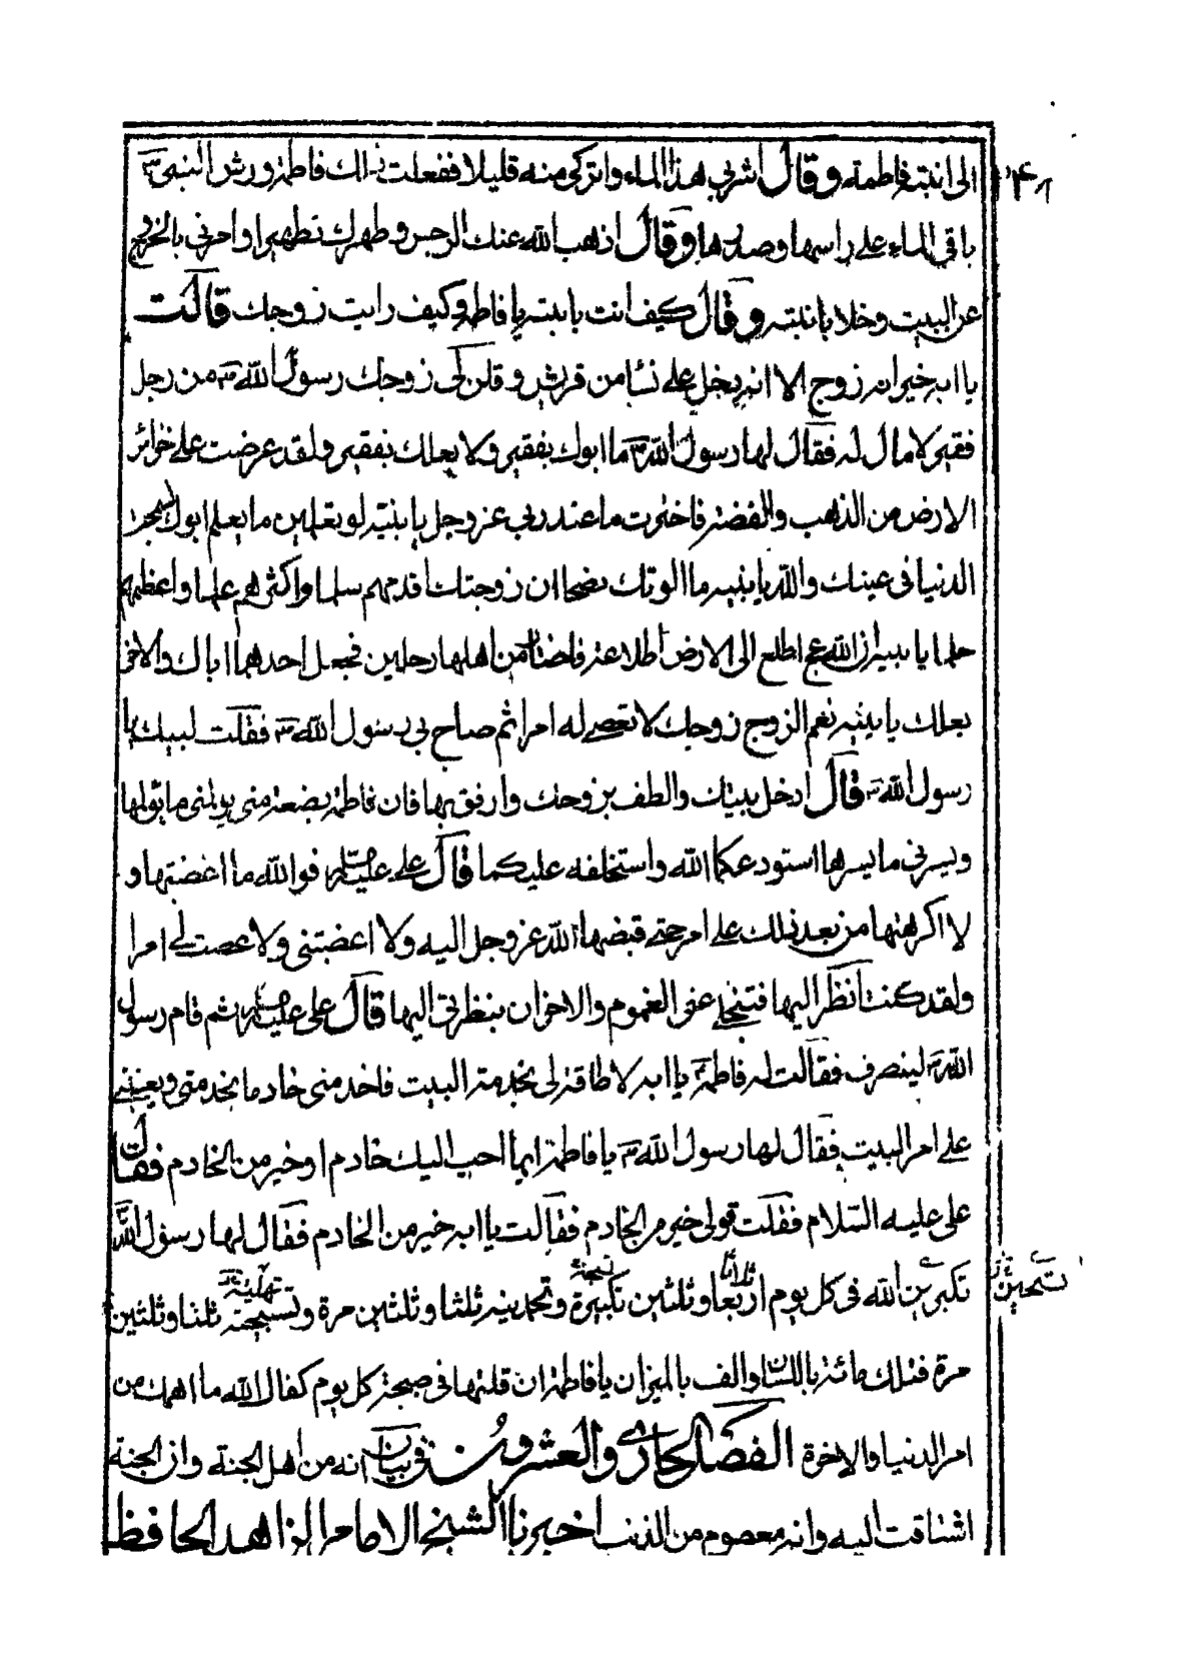 الى ابنته فاطمة وقال اشربى هذا الماء واتركى منه قليلا ففعلت ذلك فاطمة ورش النبى ص
باقى الماء على راسها وصدرها وقال اذهب الله عنك الرجس وطهرك تطهيرا وامرنى بالخروج
عن البيت وخلا بابنته وقال كيف انت يا بنته يا فاطمة وكيف رايت زوجك قالت
يا ابه خير ان زوج الا انه يدخل على نسا من قريش وقلن لى زوجك رسول الله ص من رجل
فقير لا مال له فقال لها رسول الله ص ما ابوك بفقير ولا بعلك بفقير ولقد عرضت على خزائن
الارض من الذهب والفضة فاخترت ما عند ربى عز وجل يا بنيته لو تعلمين ما يعلم ابوك لسمجت
الدنيا فى عينك والله يا بنيه ما الوتك نصحا ان زوجتك اقدمهم سلما واكثرهم علما واعظمهم
حلما يا بنيه ان الله عج اطلع الى الارض اطلاعة فاختار من اهلها رجلين فجعل احدهما اباك والاخر
بعلك يا بنيه نعم الزوج زوجك لا تعصى له امرا ثم صاح بى رسول الله ص فقلت لبيك يا
رسول الله ص قال ادخل بيتك والطف بزوجك وارفق بها فان فاطمة بضعة منى يولمنى ما يولمها
ويسرنى ما يسرها استودعكما الله واستخلفه عليكما قال على عليه السلام فوالله ما اغضبتها و
لا اكرهتها من بعد ذلك على امر حتى قبضها الله عز وجل اليه ولا اغضبتنى ولا عصت لى امرا
ولقد كنت انظر اليها فتنجلى عنى الغموم والاحزان بنظرتى اليها قال على عليه السلام ثم قام رسول
الله ص لينصرف فقالت له فاطمة يا ابه لا طاقة لى بخدمة البيت فاخدمنى خادما يخدمنى ويعيننى
على امر البيت فقال لها رسول الله ص يا فاطمة ايما احب اليك خادم او خير من الخادم فقال
على عليه السلام فقلت قولى خير من الخادم فقالت يا ابه خير من الخادم فقال لها رسول الله
تكبرين الله فى كل يوم اربعا وثلثين تكبيرة وتحمدينه ثلثا وثلثين مرة وتسبيحة ثلثا وثلثين
مرة فتلك مائة باللسان والف بالميزان يا فاطمة ان قلتها فى صبيحة كل يوم كفاك الله ما اهمك من
امر الدنيا والاخرة الفصل الحادى والعشرون فى بيان انه من اهل الجنة وان الجنة
اشتاقت اليه وانه معصوم من الذنب اخبرنا الشيخ الامام الزاهد الحافظ